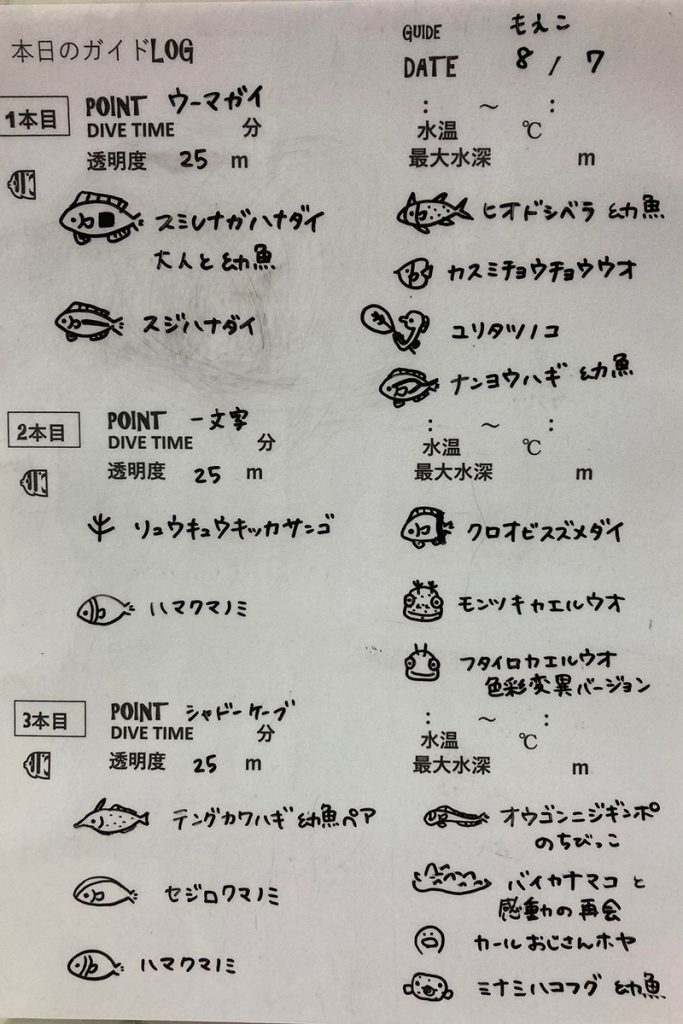 本日のガイドLOG
GUIDE もえこ
DATE 8 / 7
1本目
POINT ウーマガイ
DIVE TIME 分
透明度 25 m
: ～ :
水温 ℃
最大水深 m
スミレナガハナダイ
大人と幼魚
スジハナダイ
ヒオドシベラ 幼魚
カスミチョウチョウウオ
ユリタツノコ
ナンヨウハギ 幼魚
2本目
POINT 一文字
DIVE TIME 分
透明度 25 m
: ～ :
水温 ℃
最大水深 m
リュウキュウキッカサンゴ
ハマクマノミ
クロオビスズメダイ
モンツキカエルウオ
フタイロカエルウオ
色彩変異バージョン
3本目
POINT シャドーケーブ
DIVE TIME 分
透明度 25 m
: ～ :
水温 ℃
最大水深 m
テングカワハギ 幼魚ペア
セジロクマノミ
ハマクマノミ
オウゴンニジギンポ
のちびっこ
バイカナマコと
感動の再会
カールおじさんホヤ
ミナミハコフグ 幼魚